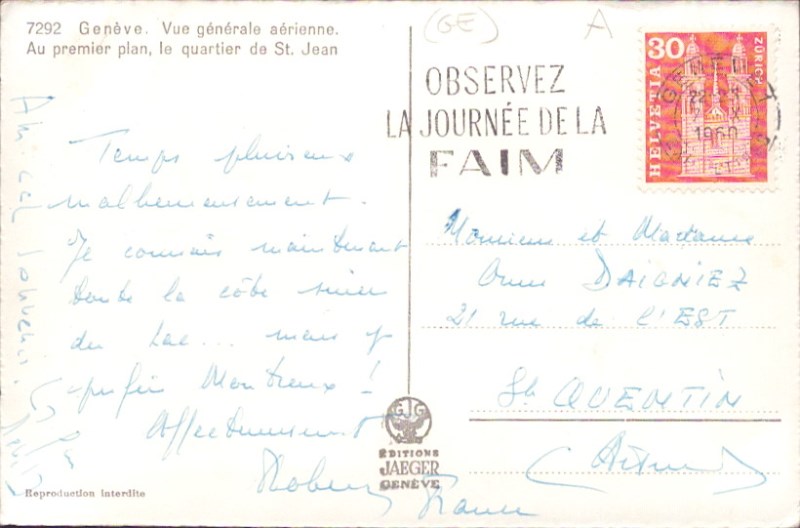 7292 Genève. Vue générale aérienne.
Au premier plan, le quartier de St. Jean
Temps pluvieux
malheureusement.
Je connais maintenant
toute la côte suisse
du Lac... mais je
préfère Montreux !
Affectueusement
(GE)
A
OBSERVEZ
LA JOURNÉE DE LA
FAIM
30
HELVETIA
ZÜRICH
22
1960
Monsieur et Madame
DAIGNIEZ
21 rue de l'EST
St QUENTIN
(Aisne)
France
ÉDITIONS
JAEGER
GENÈVE
Reproduction interdite